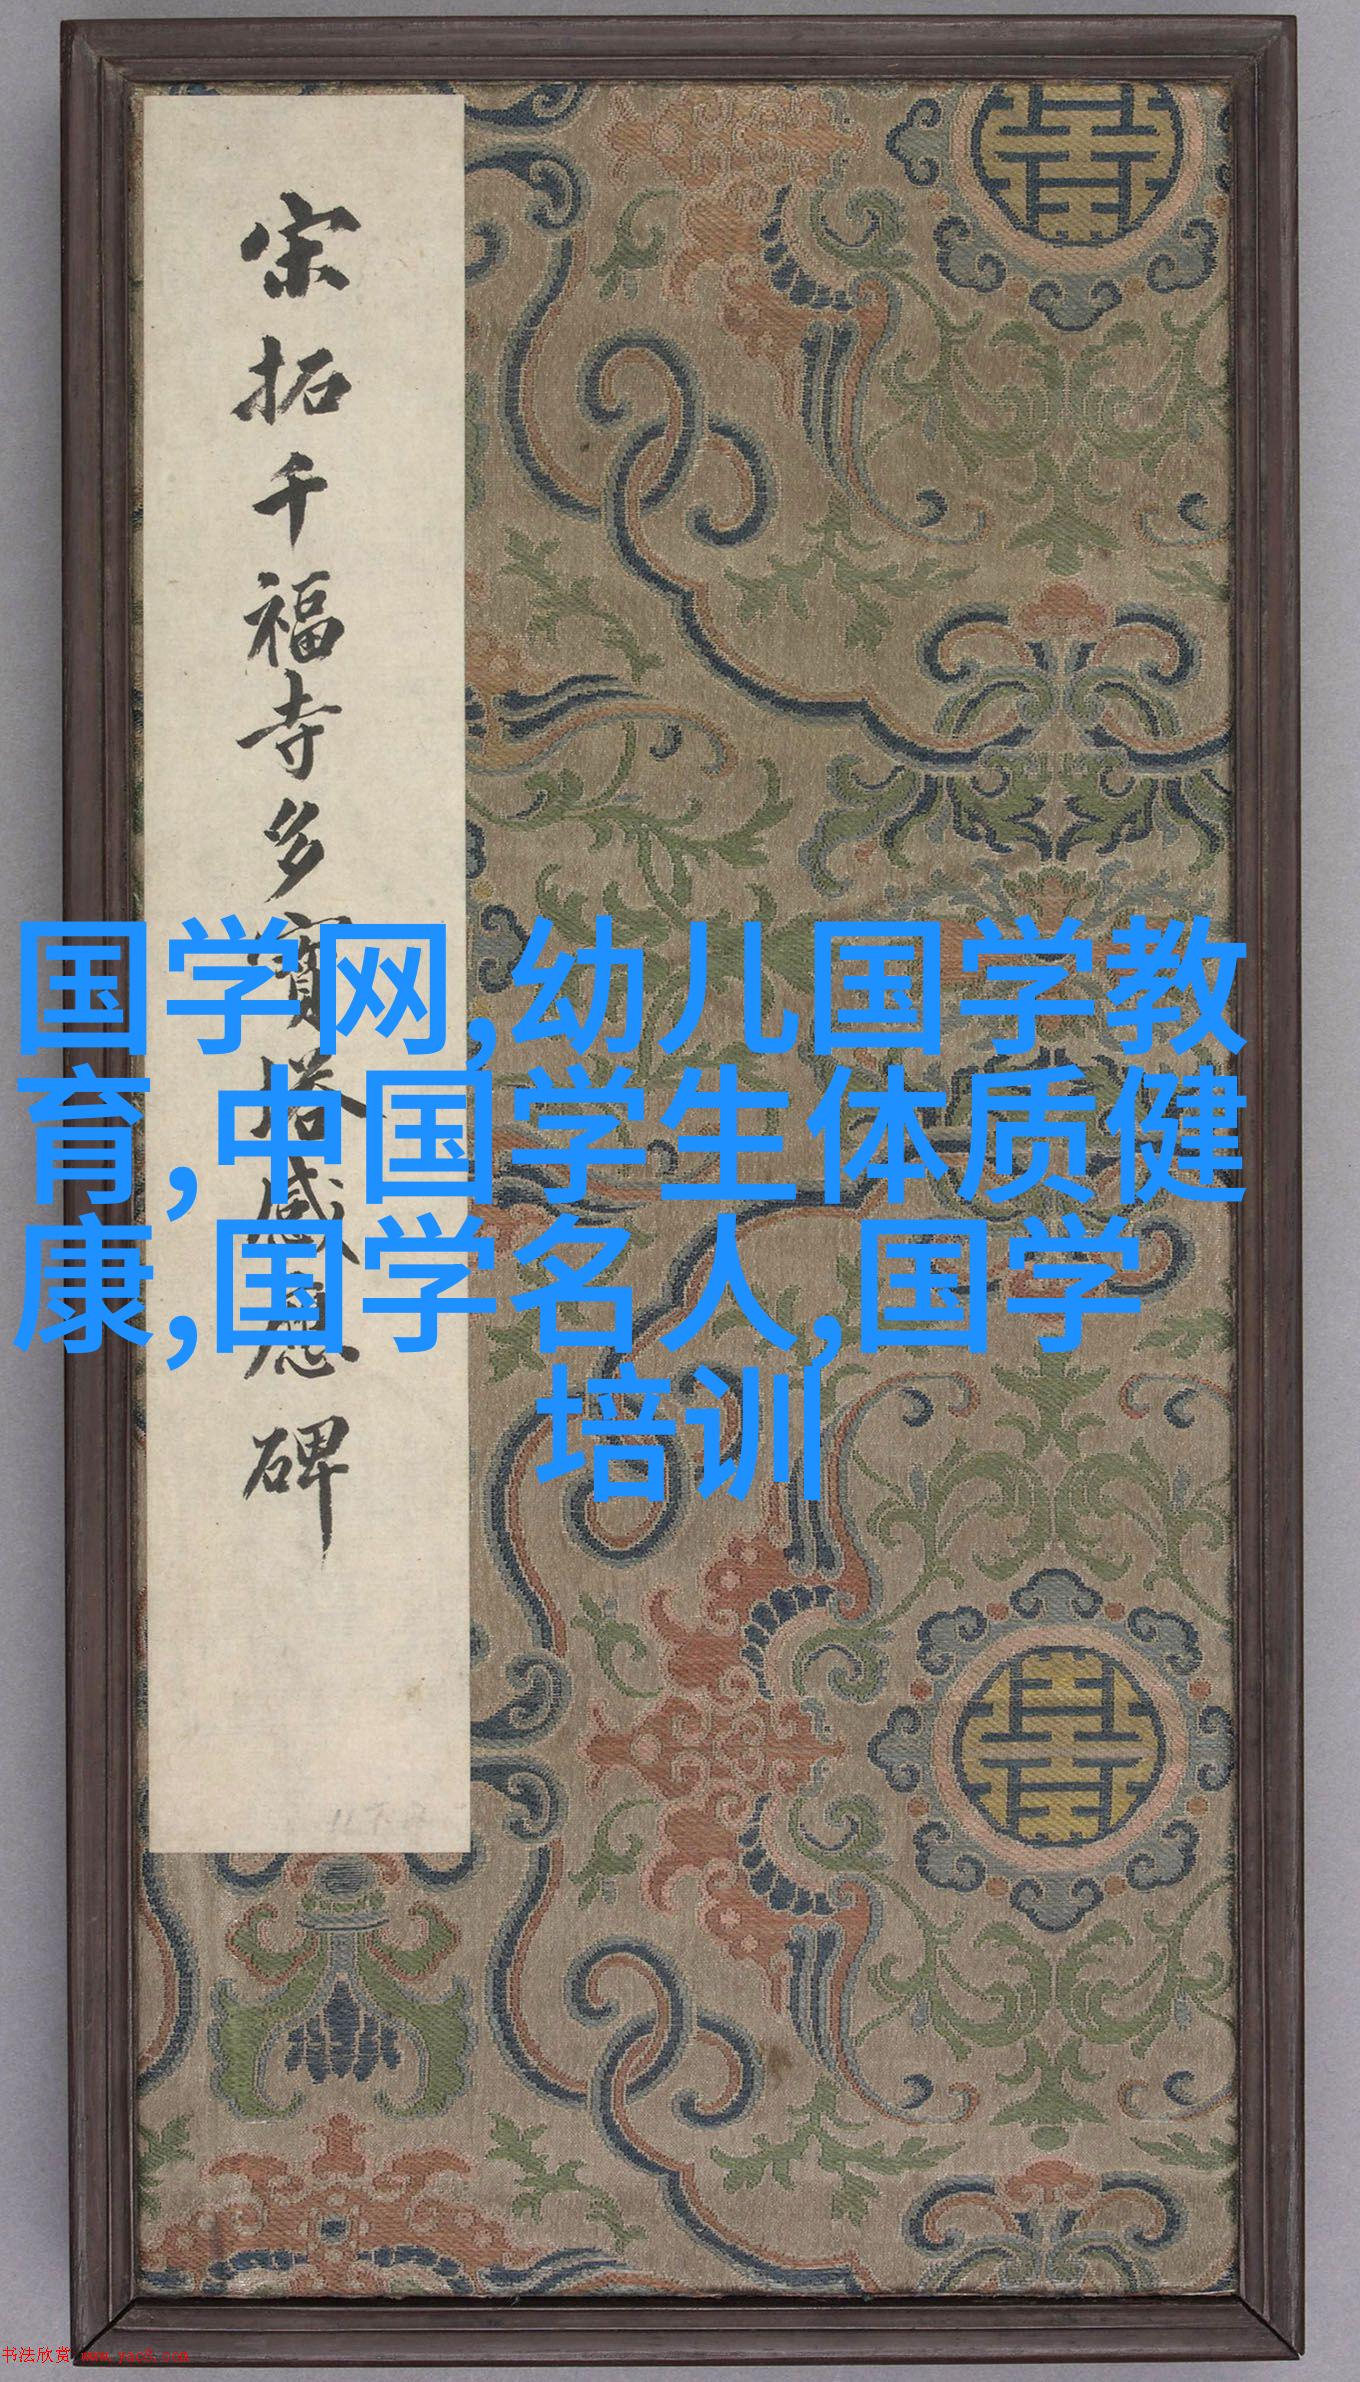 宋拓千福寺多寶塔感應碑
国学网,幼儿国学教
育,中国学生体质健
康,国学名人,国学
培训
书法欣赏 www.yac8.com